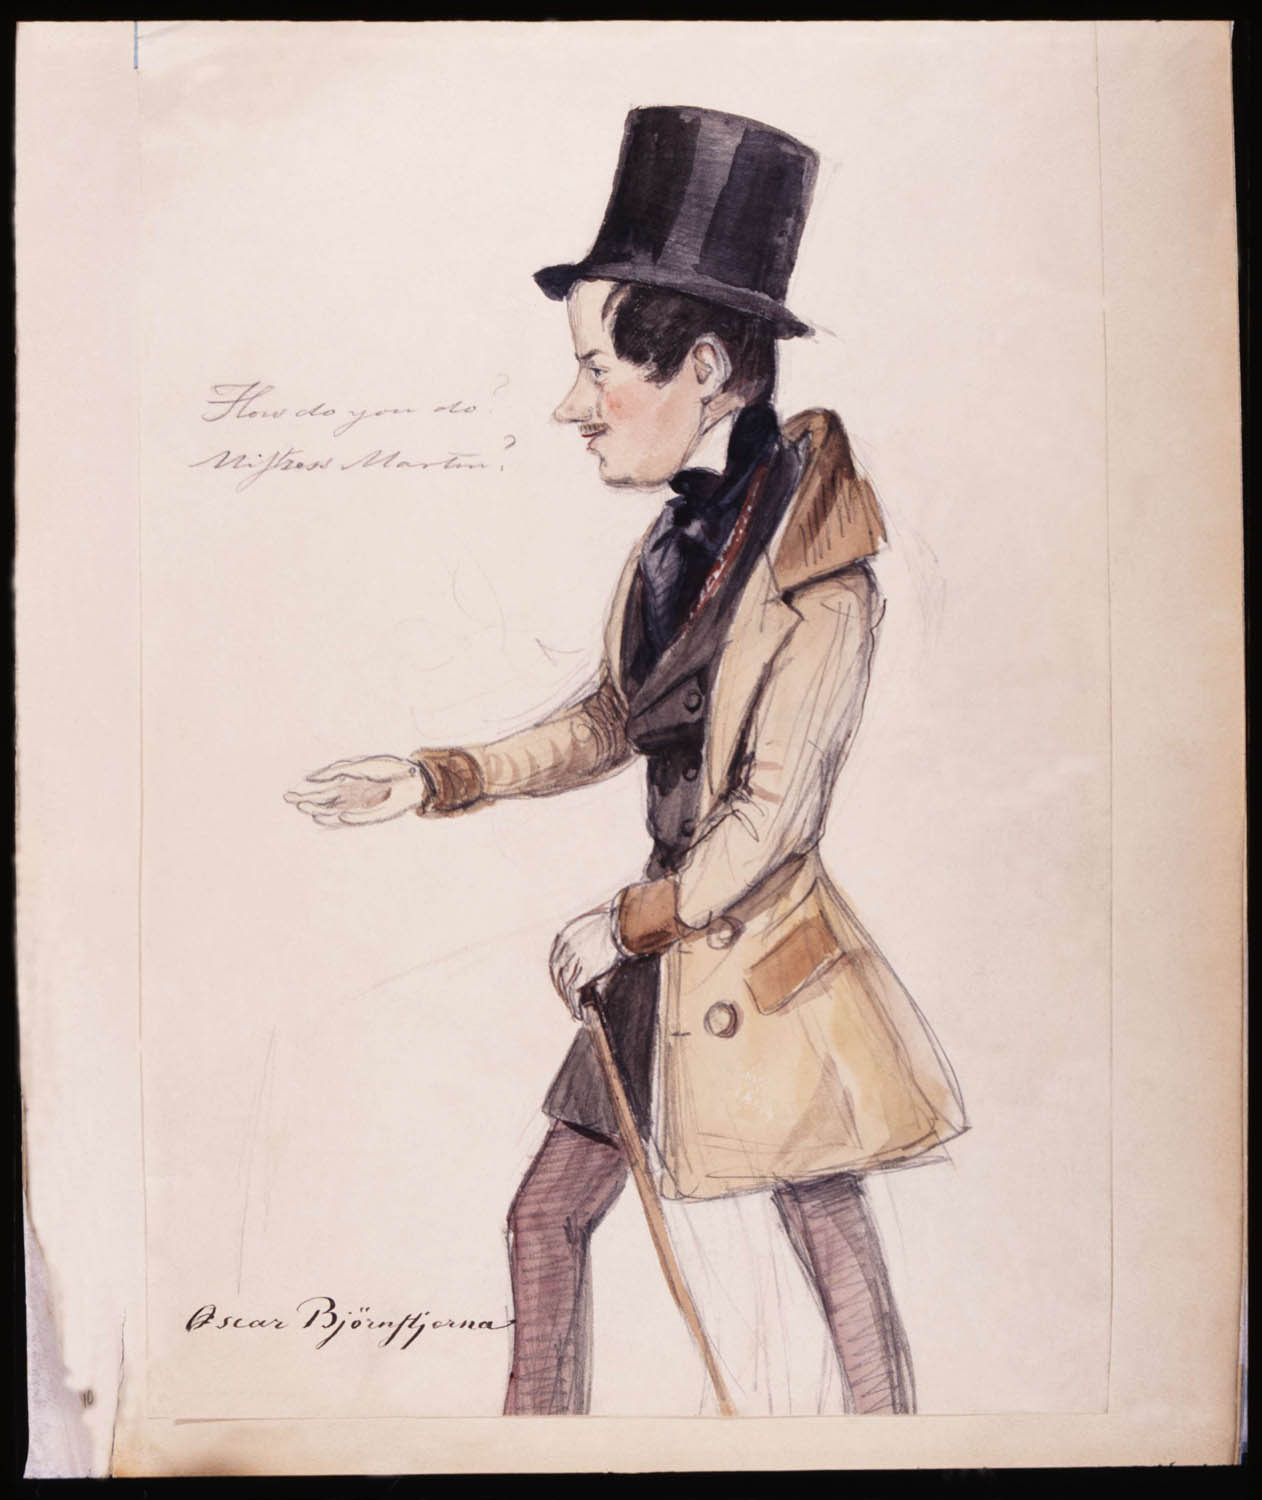 How do you do?
Miſtress Martin?
Oscar Björnſtjerna
10